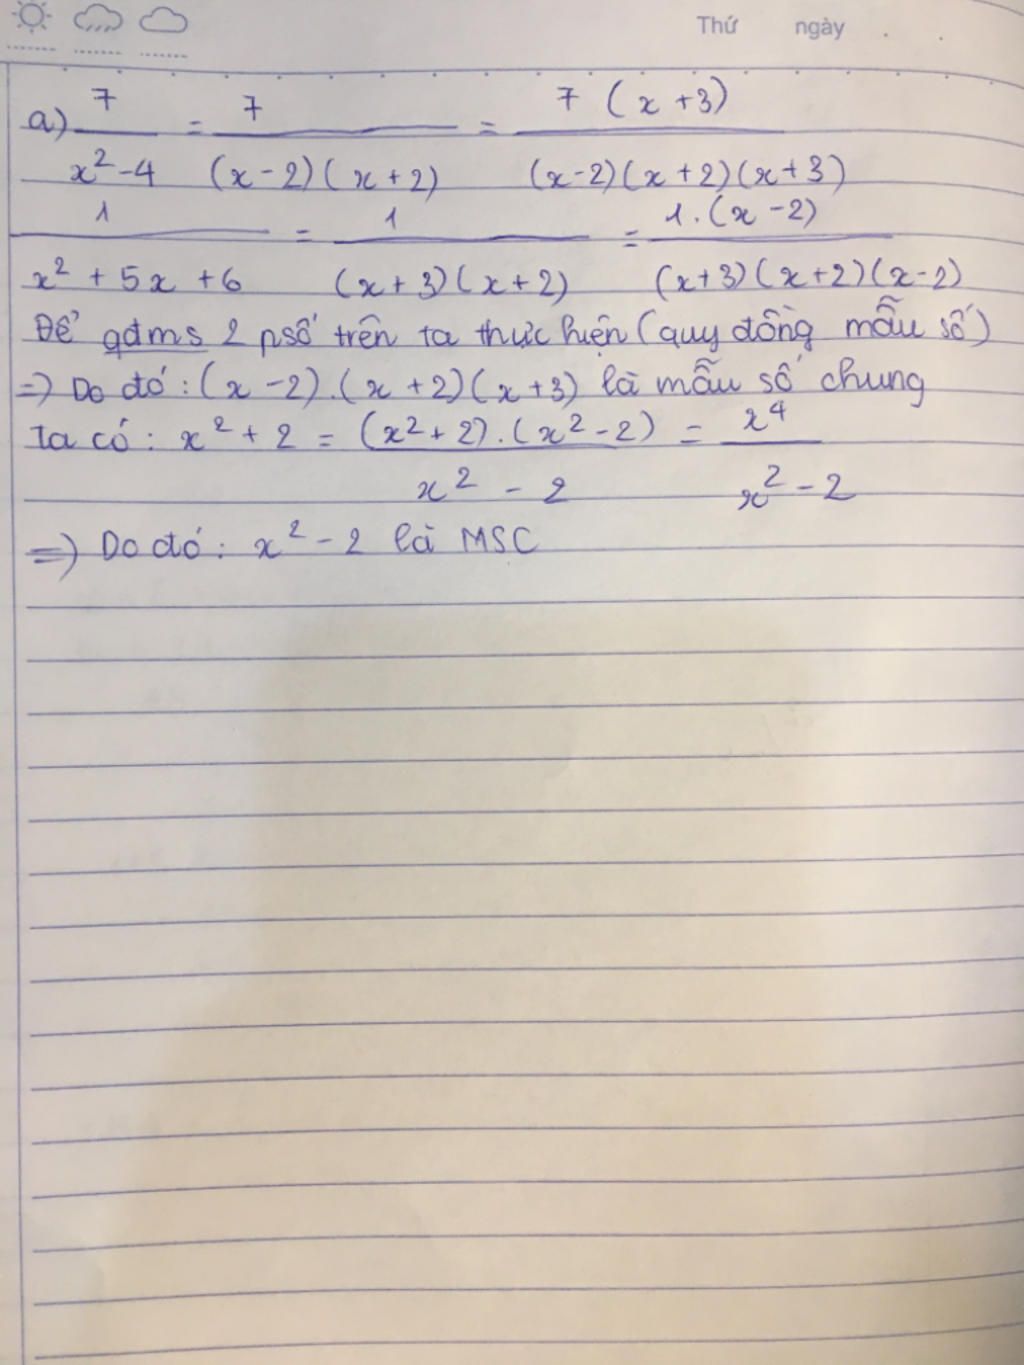 Thứ ngày
a) 7/(x²-4) = 7/((x-2)(x+2)) = 7(x+3)/((x-2)(x+2)(x+3))
1/(x²+5x+6) = 1/((x+3)(x+2)) = 1.(x-2)/((x+3)(x+2)(x-2))
Để qđms 2 psố trên ta thực hiện (quy đồng mẫu số)
=) Do đó: (x-2).(x+2)(x+3) là mẫu số chung
Ta có: x²+2 = (x²+2).(x²-2)/(x²-2) = x⁴/(x²-2)
=) Do đó: x²-2 là MSC